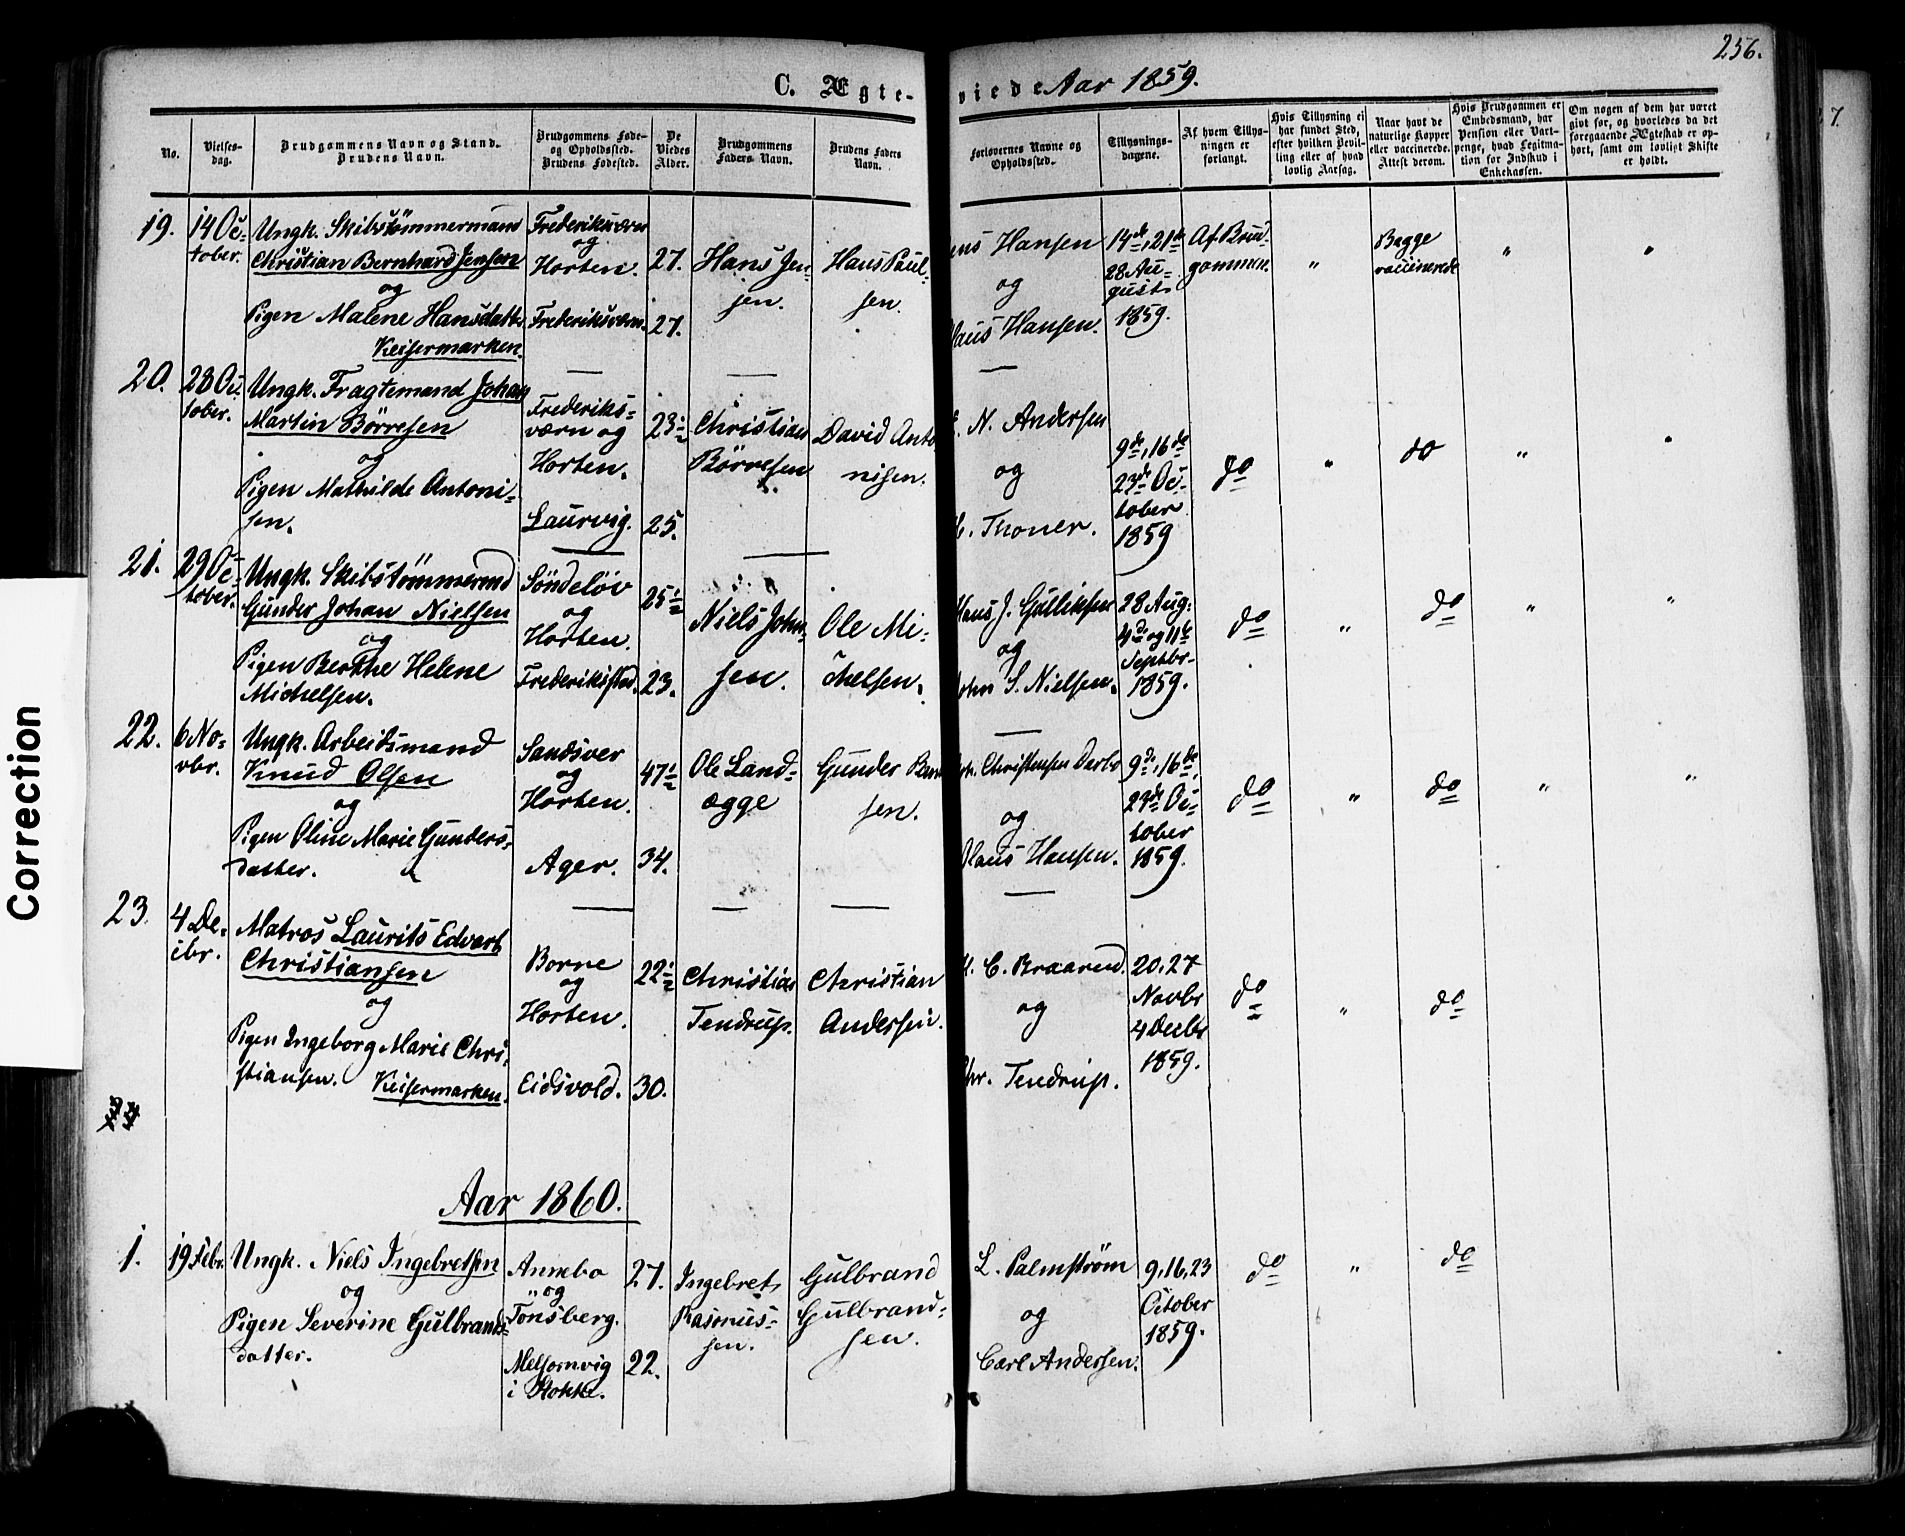 256.
C. Ægteviede Aar 1859.
No.
Vielses-
dag.
Brudgommens Navn og Stand.
Brudens Navn.
Brudgommens Føde-
og Opholdssted.
Brudens Fødested.
De
Viedes
Alder.
Brudgommens
Faders Navn.
Brudens Faders
Navn.
Forlovernes Navne og
Opholdssted.
Tillysnings-
dagene.
Af hvem Tillys-
ningen er
forlangt.
Hvis Tillysning ei
har fundet Sted,
efter hvilken Bevil-
ling eller af hvad
lovlig Aarsag.
Naar havt de
naturlige Kopper
eller vaccinerede.
Attest derom.
Hvis Brudgommen er
Embedsmand, har
Pension eller Vart-
penge, hvad Legitma-
tion for Indskud i
Enkekassen.
Om nogen af dem har været
gift før, og hvorledes da det
foregaaende Ægteskab er op-
hørt, samt om lovligt Skifte
er holdt.
19.
14 Oc-
tober.
Ungk. Skibstömmermand
Christian Bernhard Jensen
og
Pigen Malene Hansdatter
Keisermarken.
Frederiksværn
og
Horten.
Frederiksværn.
27.
27.
Hans Jen-
sen.
Hans Paul-
sen.
Hansen
og
Hansen.
14de, 21de
28 Au-
gust
1859.
Af Brud-
gommen.
"
Begge
vaccinerede
"
"
20.
28 Oc-
tober.
Ungk. Fragtemand Johan
Martin Börresen
og
Pigen Mathilde Antoni-
sen.
Frederiks-
værn og
Horten.
Laurvig.
23½
25.
Christian
Börresen
David Anto
nisen.
N. Andersen
og
Thoner.
9de, 16de
23de Oc-
tober
1859
do
"
do
"
"
21.
29 Oc-
tober.
Ungk. Skibstömmermd
Gunder Johan Nielsen
og
Pigen Berthe Helene
Michelsen.
Söndelöv
og
Horten.
Frederikstad.
25½
23.
Niels John-
sen.
Ole Mi-
chelsen.
Hans J. Gulliksen
og
John S. Nielsen.
28 Aug:
4de og 11te
Septbr
1859.
do
"
do
"
"
22.
6 No-
vbr.
Ungk. Arbeidsmand
Knud Olsen
og
Pigen Oline Marie Gunders-
datter.
Sandsver
og
Horten.
Ager.
47½
34.
Ole Land-
ægge
Gunder
sen.
Christensen
og
Olaus Hansen.
9de, 16de,
23de Oc-
tober
1859.
do
"
do
"
"
23.
4 De-
cbr.
Matros Laurits Edvart
Christiansen
og
Pigen Ingeborg Marie Chri-
stiansen. Keisermarken.
Borre
og
Horten.
Eidsvold.
22½
30.
Christian
Tendrup.
Christian
Andersen.
C. Braarud.
og
Chr. Tendrup.
20, 27
Novbr
4 Decbr
1859.
do
"
do
24
Aar 1860.
1.
19 Febr.
Ungk. Niels Ingebretsen
og
Pigen Severine Gulbrands-
datter.
Annebo
og
Tönsberg.
Melsomvig
i Stokke.
27.
22.
Ingebret
Rasmus-
sen.
Gulbrand
Gulbrand-
sen.
L. Palmström
og
Carl Andersen.
9, 16, 23
October
1859.
do
"
do
7.
Correction